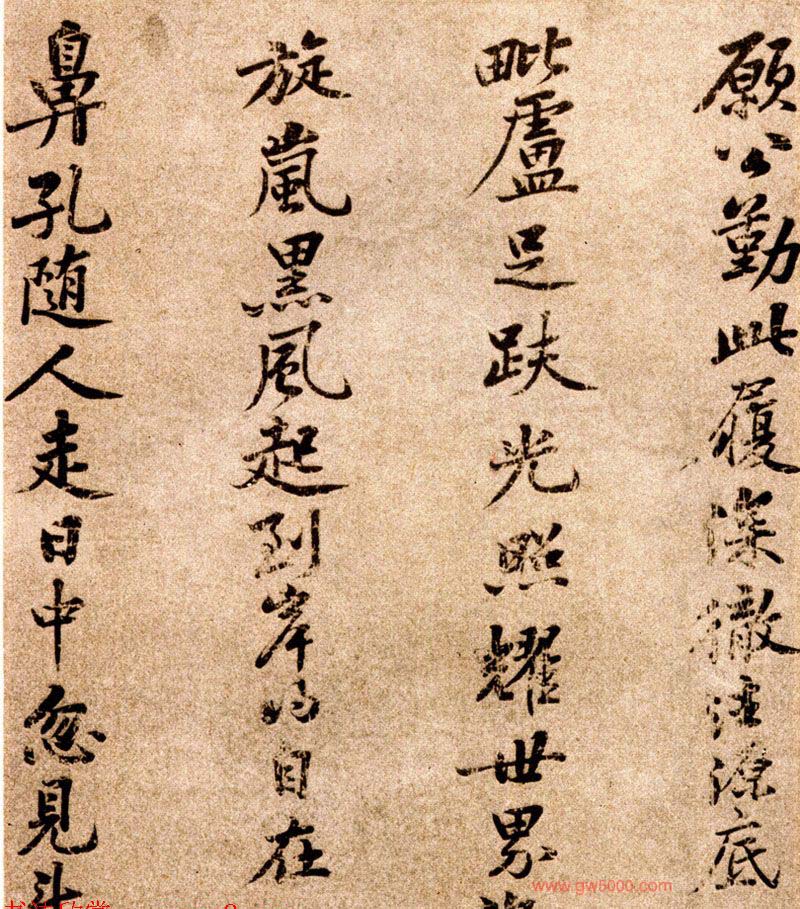 願公勤此履深徹法源底
毗盧足趺光照耀世界
旋嵐黑風起到岸得自在
鼻孔随人走日中忽見斗
www.gw5000.com
书法欣赏